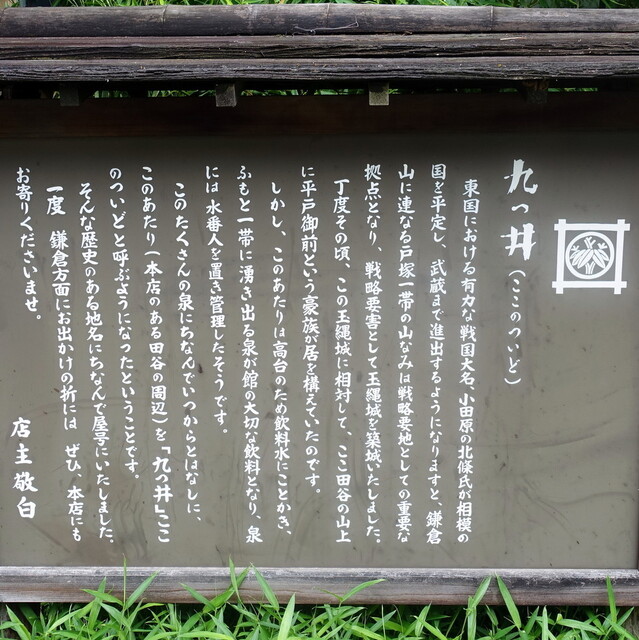 九つ井（ここのついど）
東国における有力な戦国大名、小田原の北條氏が相模の
国を平定し、武蔵まで進出するようになりますと、鎌倉
山に連なる戸塚一帯の山なみは戦略要地としての重要な
拠点となり、戦略要害として玉縄城を築城いたしました。
丁度その頃、この玉縄城に相対して、ここ田谷の山上
に平戸御前という豪族が居を構えていたのです。
しかし、このあたりは高台のため飲料水にことかき、
ふもと一帯に湧き出る泉が館の大切な飲料となり、泉
には水番人を置き管理したそうです。
このたくさんの泉にちなんでいつからとはなしに、
このあたり（本店のある田谷の周辺）を「九つ井」ここ
のついどと呼ぶようになったということです。
そんな歴史のある地名にちなんで屋号にいたしました。
一度 鎌倉方面にお出かけの折には ぜひ、本店にも
お寄りくださいませ。
店主敬白